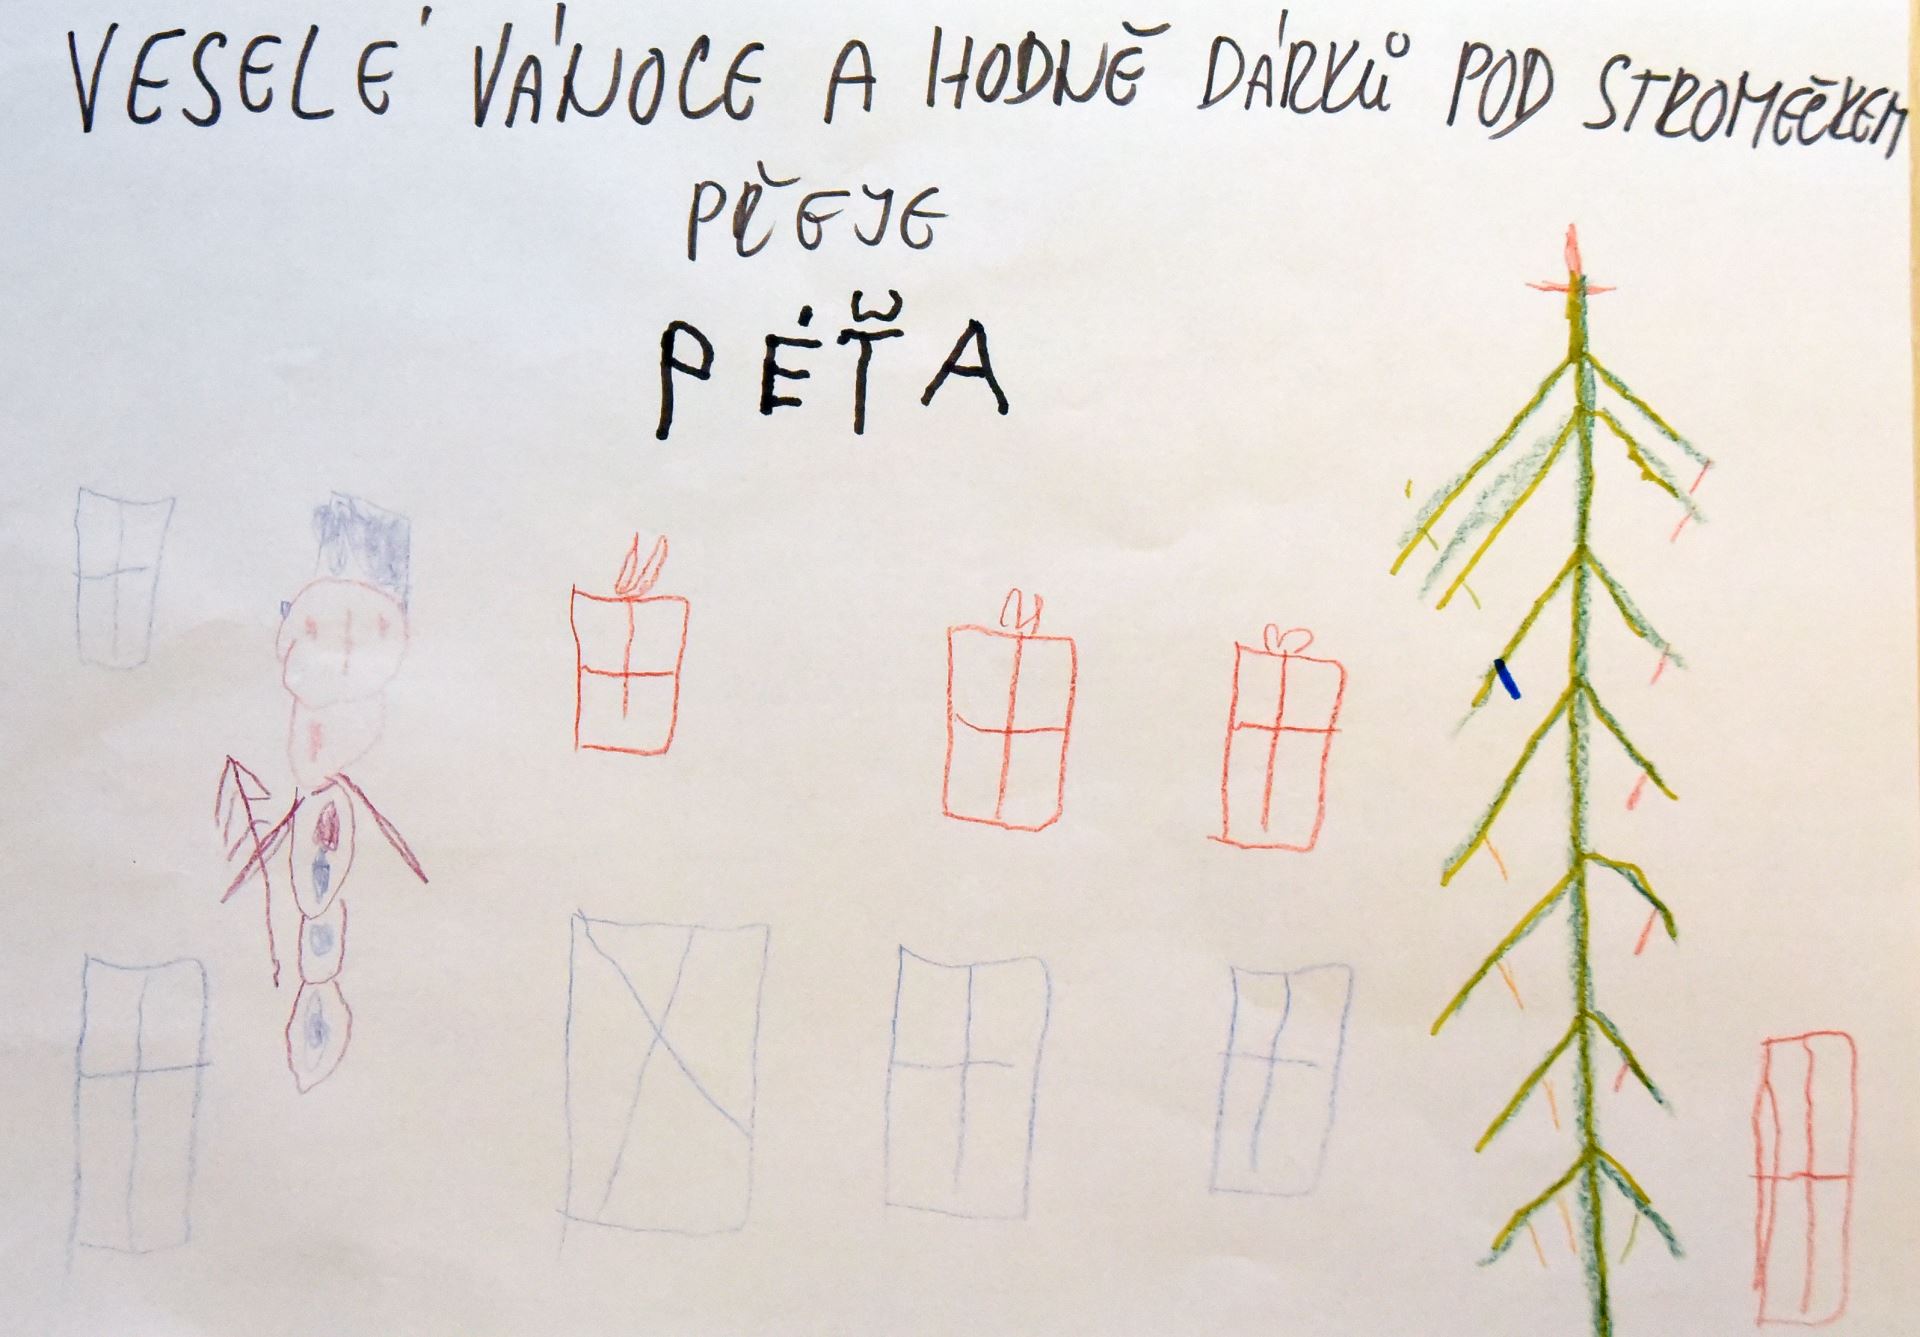 VESELÉ VÁNOCE A HODNĚ DÁRKŮ POD STROMEČKEM
PŘEJE
PÉŤA